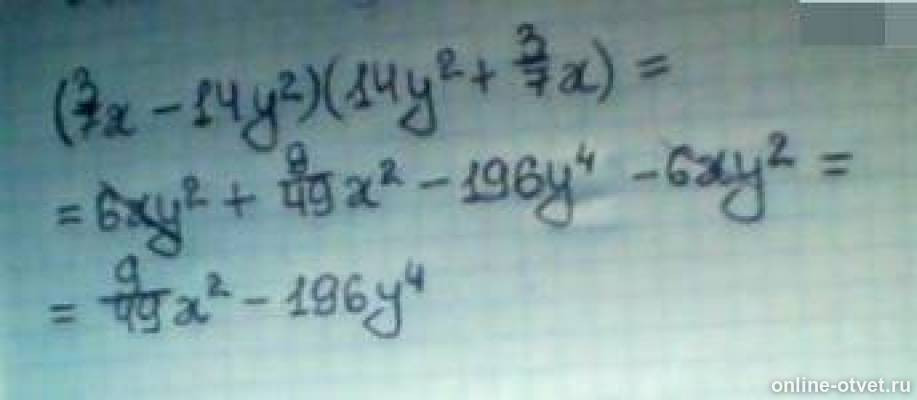 (3/7x - 14y²)(14y² + 3/7x) =
= 6xy² + 9/49x² - 196y⁴ - 6xy² =
= 9/49x² - 196y⁴
online-otvet.ru